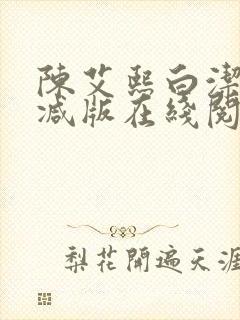 陳艾熙白潔
减版在綫閱
梨花開遍天涯